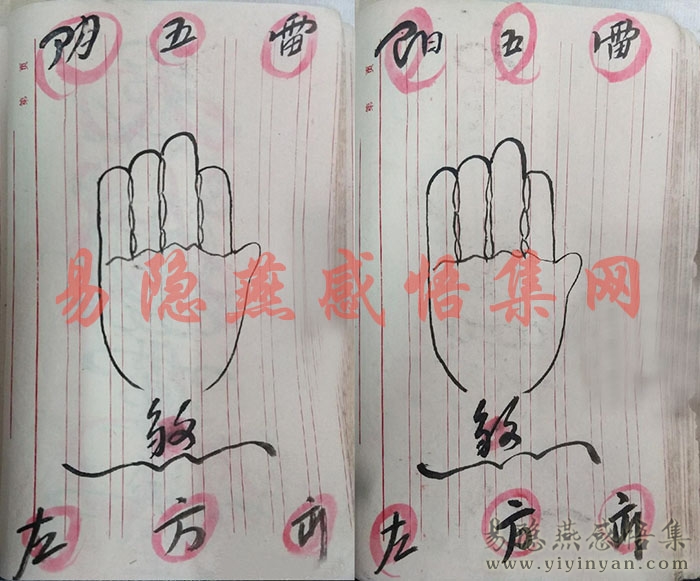 阴五雷
第 页
左方
阳五雷
第 页
左
易隐燕感悟集网
易隐燕感悟集
www.yiyinyan.com